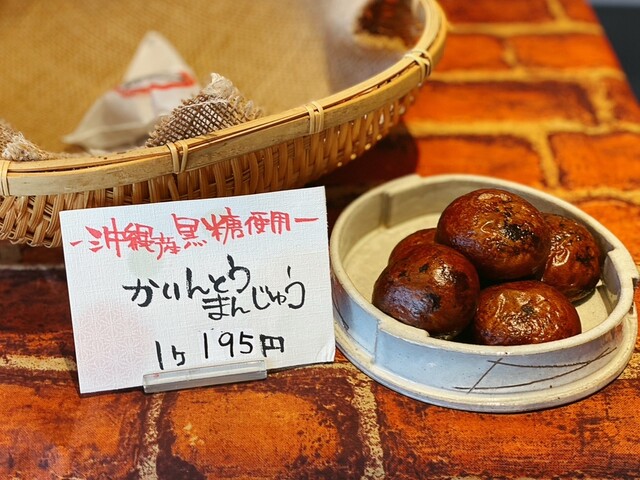 沖縄産黒糖使用
かりんとう
まんじゅう
1ケ 195円